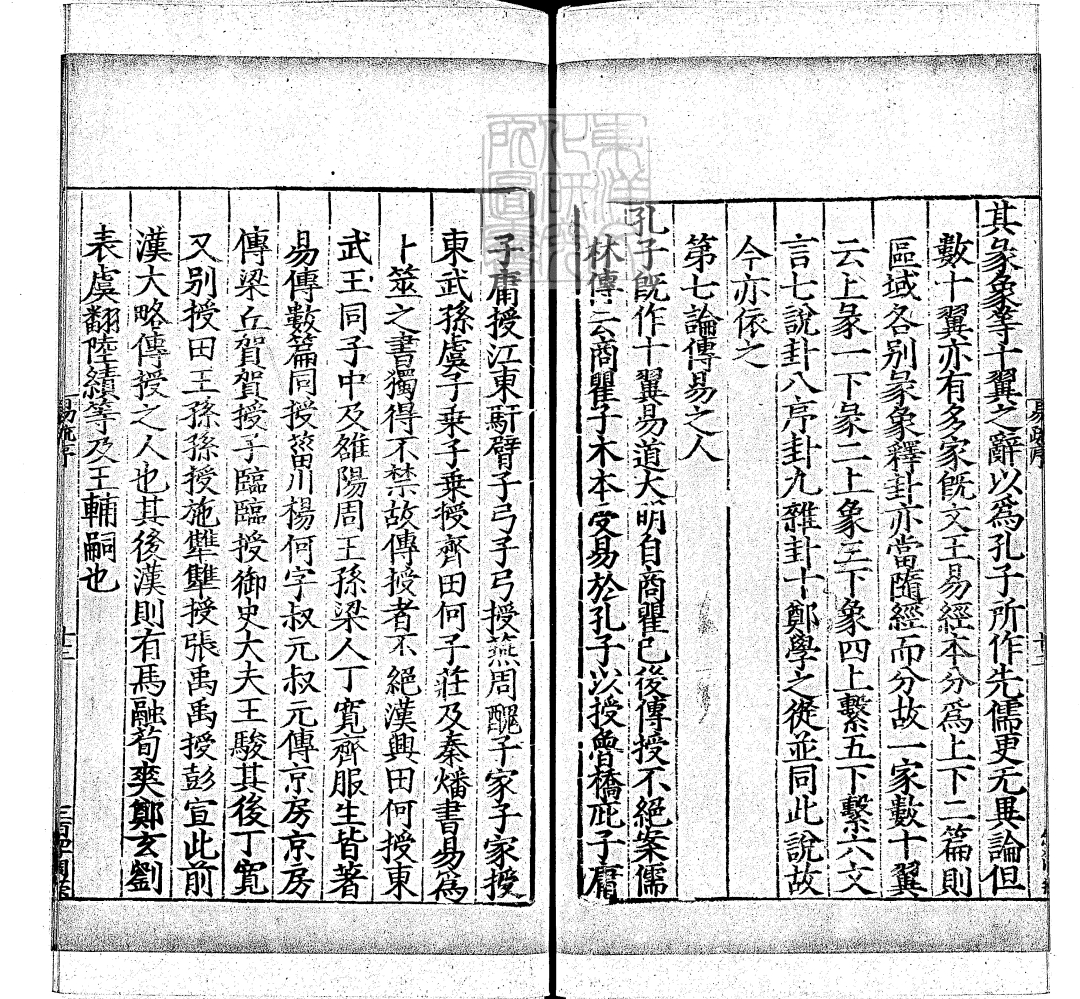 其彖象等十翼之辭以爲孔子所作先儒更无異論但
數十翼亦有多家旣文王易經本分爲上下二篇則
區域各别彖象釋卦亦當隨經而分故一家數十翼
云上彖一下彖二上象三下象四上繫五下繫六文
言七說卦八序卦九雜卦十鄭學之徒並同此說故
今亦依之
第七論傳易之人
孔子旣作十翼易道大明自商瞿已後傳授不絕案儒
林傳云商瞿子木本受易於孔子以授魯橋庇子庸
子庸授江東馯臂子弓子弓授燕周醜子家子家授
東武孫虞子乗子乗授齊田何子莊及秦燔書易爲
卜筮之書獨得不禁故傳授者不絕漢興田何授東
武王同子中及雒陽周王孫梁人丁寬齊服生皆著
易傳數篇同授菑川楊何字叔元叔元傳京房京房
傳梁丘賀賀授子臨臨授御史大夫王駿其後丁寬
又别授田王孫孫授施讎讎授張禹禹授彭宣此前
漢大略傳授之人也其後漢則有馬融荀爽鄭玄劉
表虞翻陸績等及王輔嗣也
易疏序
十二
易疏序
十三